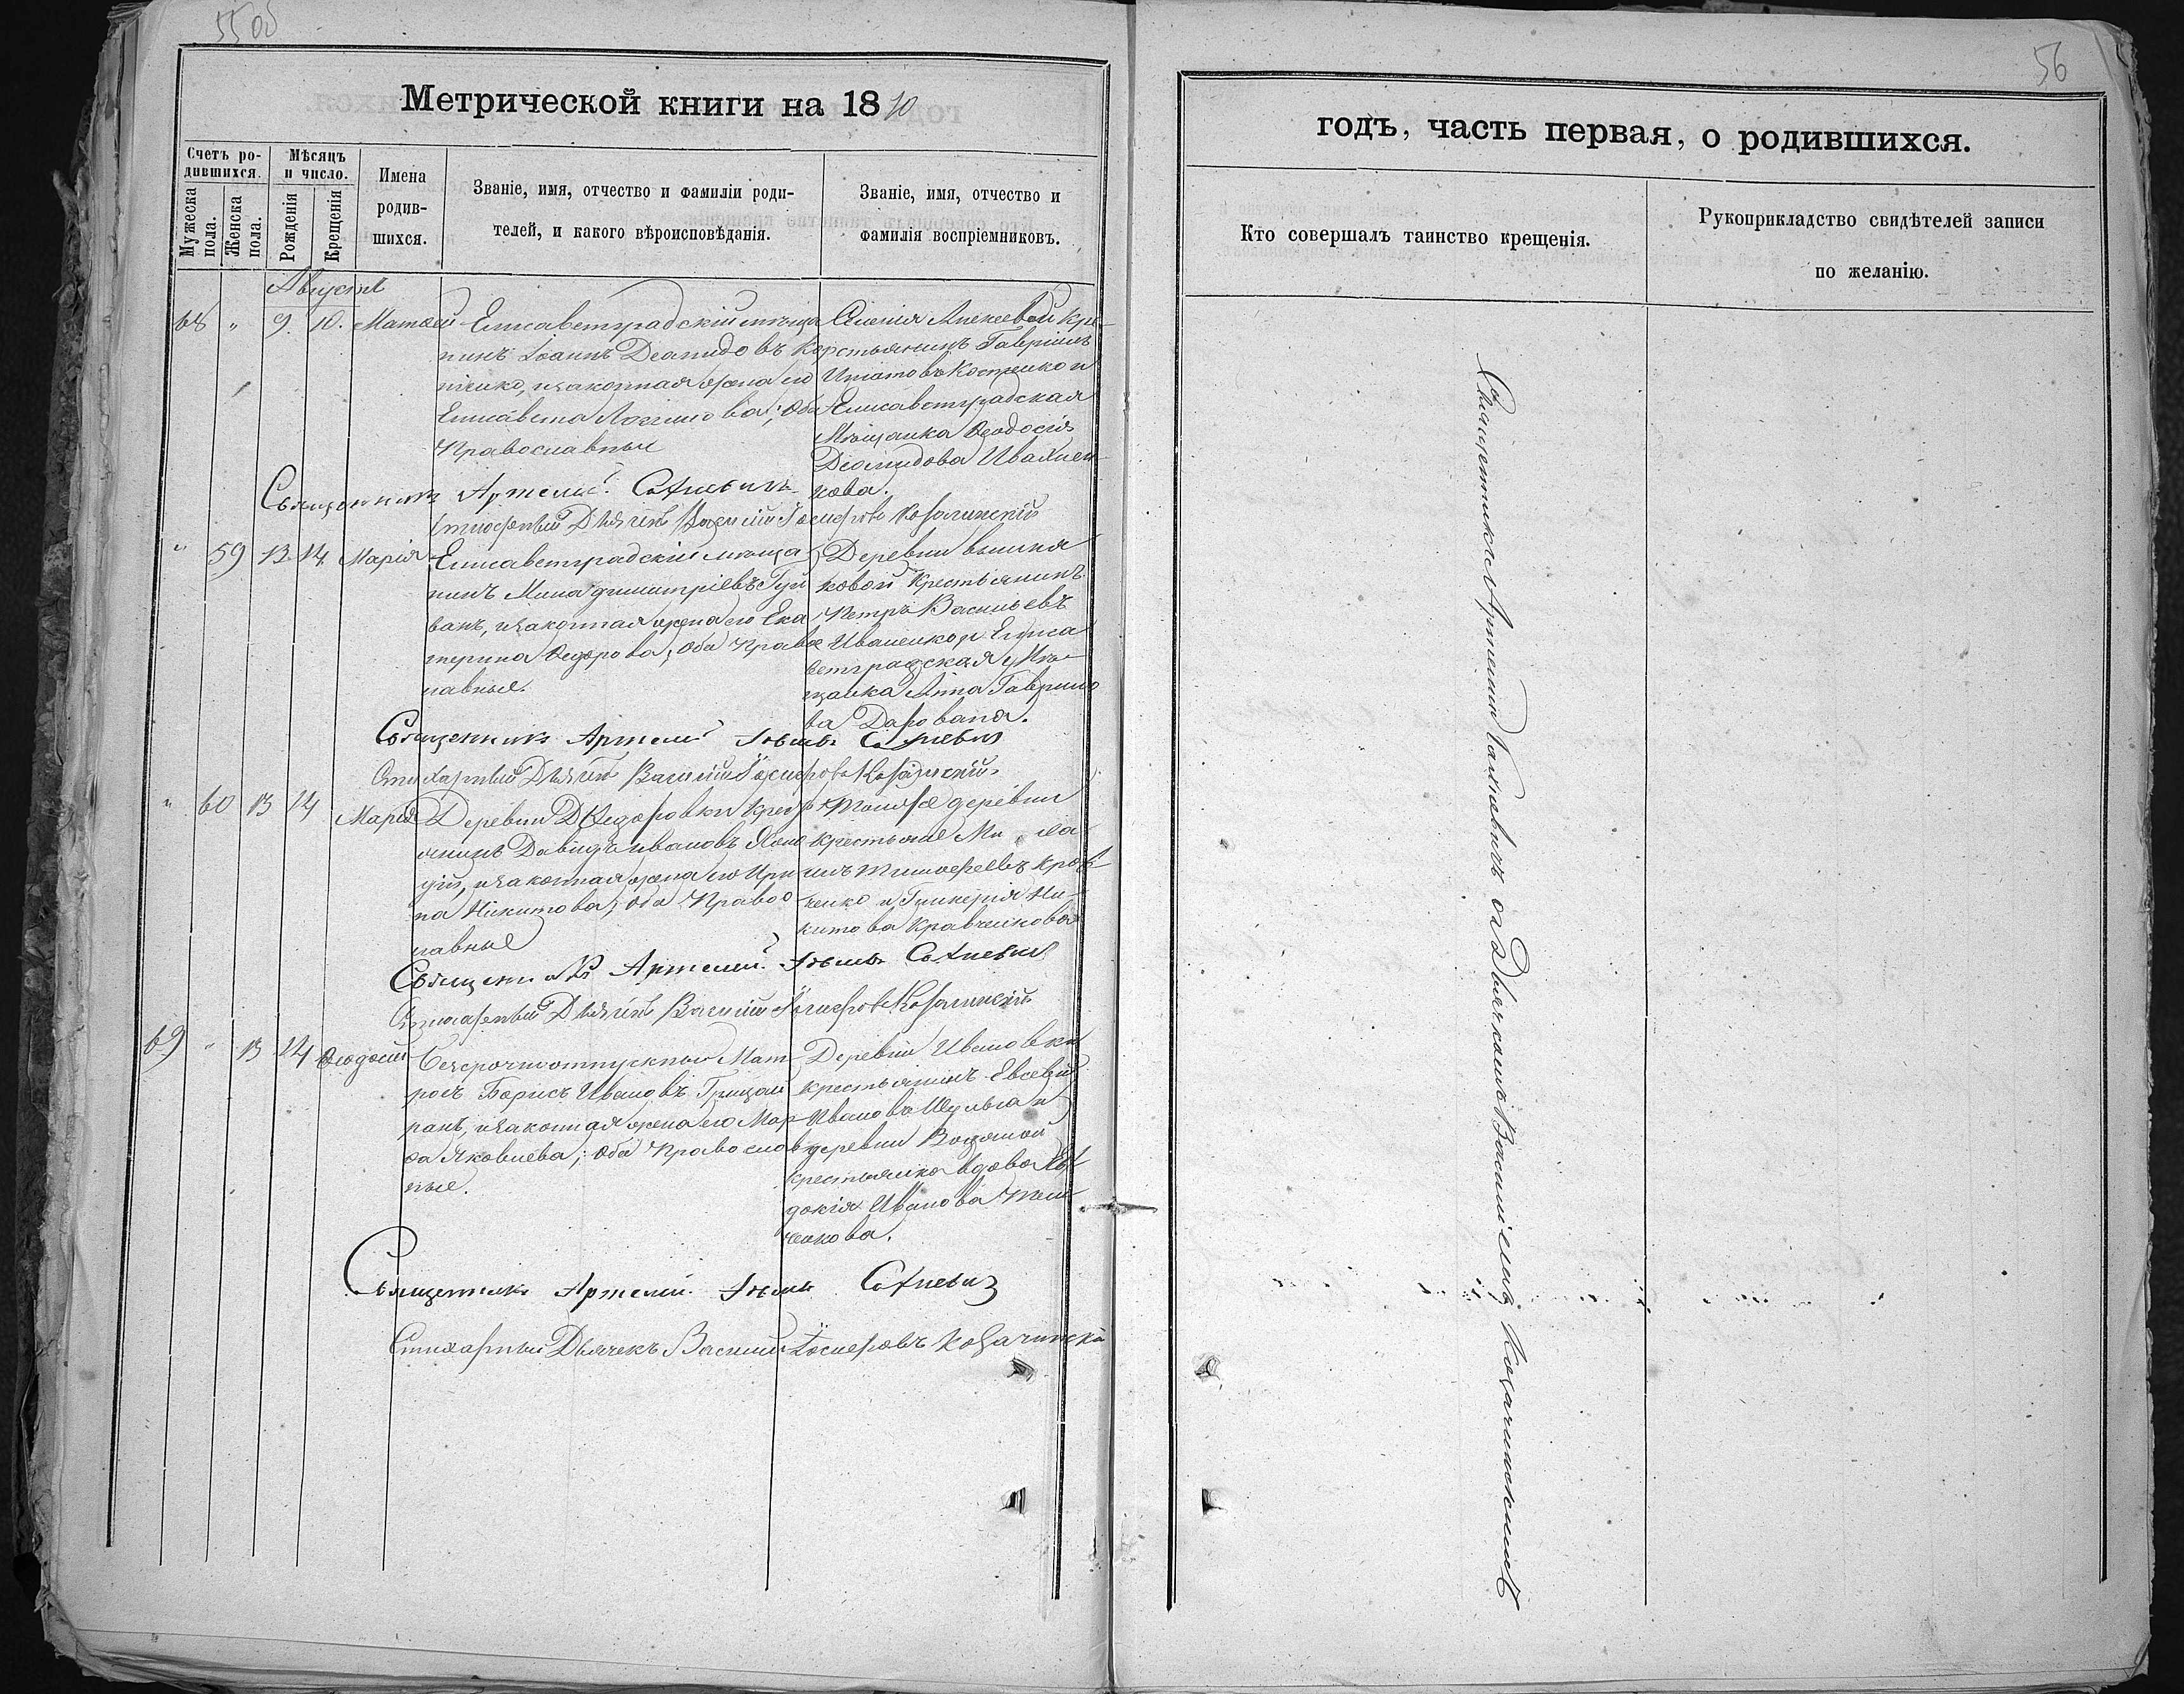 56
Метрической книги на 1870
годъ, часть первая, о родившихся.
Счетъ ро-
дившихся.
Мужеска
пола.
Женска
пола.
Мѣсяцъ
и число.
Рожденія
Крещенія
Имена
родив-
шихся.
Званіе, имя, отчество и фамиліи роди-
телей, и какого вѣроисповѣданія.
Званіе, имя, отчество и
фамилія воспріемниковъ.
Кто совершалъ таинство крещенія.
Рукоприкладство свидѣтелей записи
по желанію.
Августъ
68 " 9. 10. Матѳей
Елисаветградскій мѣща
нинъ Іоаннъ Деомидовъ
законная жена его
Елисавета Логинова; оба
Православные
Кре
стьянинъ Гавріилъ
Игнатовъ Костенко и
Елисаветградская
Мѣщанка Ѳеодосія
Діомидова Ивахнен
кова.
Священникъ Артемій Сахневичъ
Стихарный Дьячекъ Василій Іосифовъ Козачинскій
" 59 13. 14. Марія
Елисаветградскій мѣща
нинъ Мина Димитріевъ Гуй
ванъ, и законная жена его Ека
терина Ѳедорова; оба Правос
лавные.
Деревни
ковой крестьянинъ
Петръ Васильевъ
Иваненко и Елиса
ветградская Мѣ
щанка Анна Гаврило
ва
Священникъ Артемій Сахневичъ
Стихарный Дьячекъ Василій Іосифовъ Козачинскій
" 60 13 14 Марія
Деревни Ѳедоровки крест
янинъ Давидъ Ивановъ
и законная жена его Ири
на Никитова; оба Правос
лавные
Той же деревни
крестьяне Миха
илъ Тимофеевъ Крав
ченко и Гликерія Ни
китова Кравченкова
Священникъ Артемій Сахневичъ
Стихарный Дьячекъ Василій Іосифовъ Козачинскій
69 " 13 14 Ѳеодосій
Безсрочноотпускный Мат
росъ Борисъ Ивановъ
и законная жена его Мар
ѳа Яковлева; оба Православ
ные.
Деревни Ивановки
крестьянинъ Евсевій
Ивановъ Шульга и
деревни Водяной
крестьянка вдова Ев
докія Иванова
ченкова.
Священникъ Артемій Сахневичъ
Стихарный Дьячекъ Василій Іосифовъ Козачинскій
Священникъ Артемій Сахневичъ съ Дьячкомъ Василіемъ Козачинскимъ